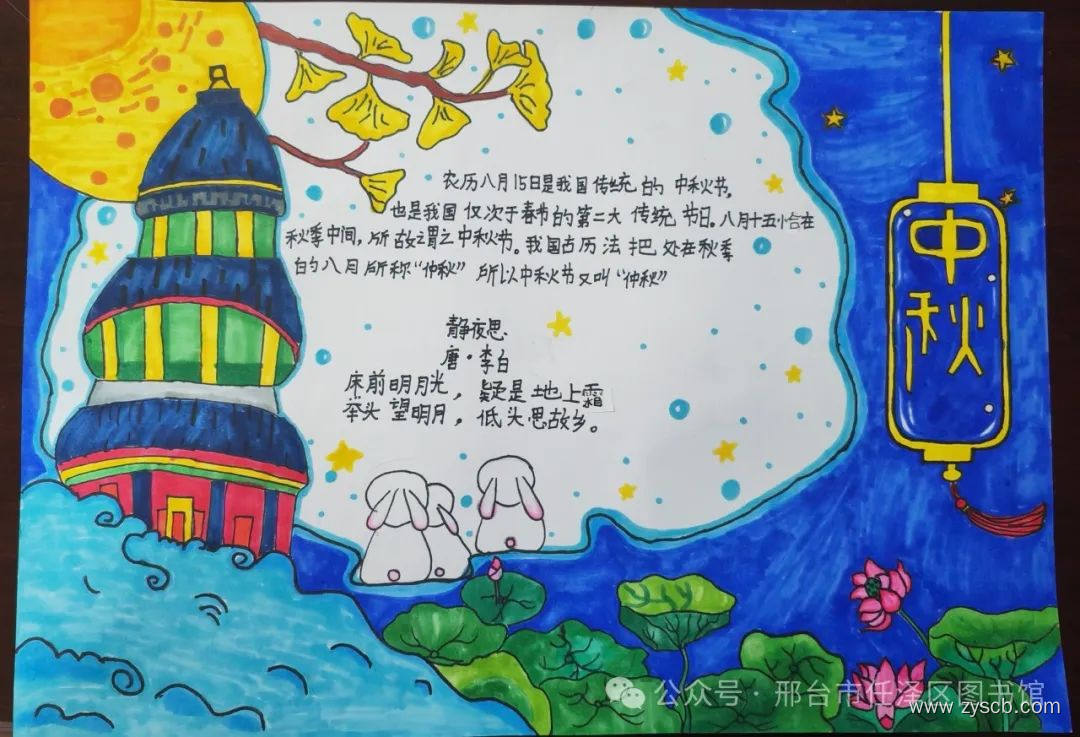 农历八月15日是我国传统的中秋节,
也是我国仅次于春节的第二大传统节日。八月十五恰在
秋季中间,所故谓之中秋节。我国占历法把处在秋季
的八月所称“仲秋”所以中秋节又叫“仲秋”
静夜思.
唐·李白
床前明月光,疑是地上霜
举头望明月,低头思故乡。
中秋
公众号·邢台市任泽区图书馆
www.zyscb.com